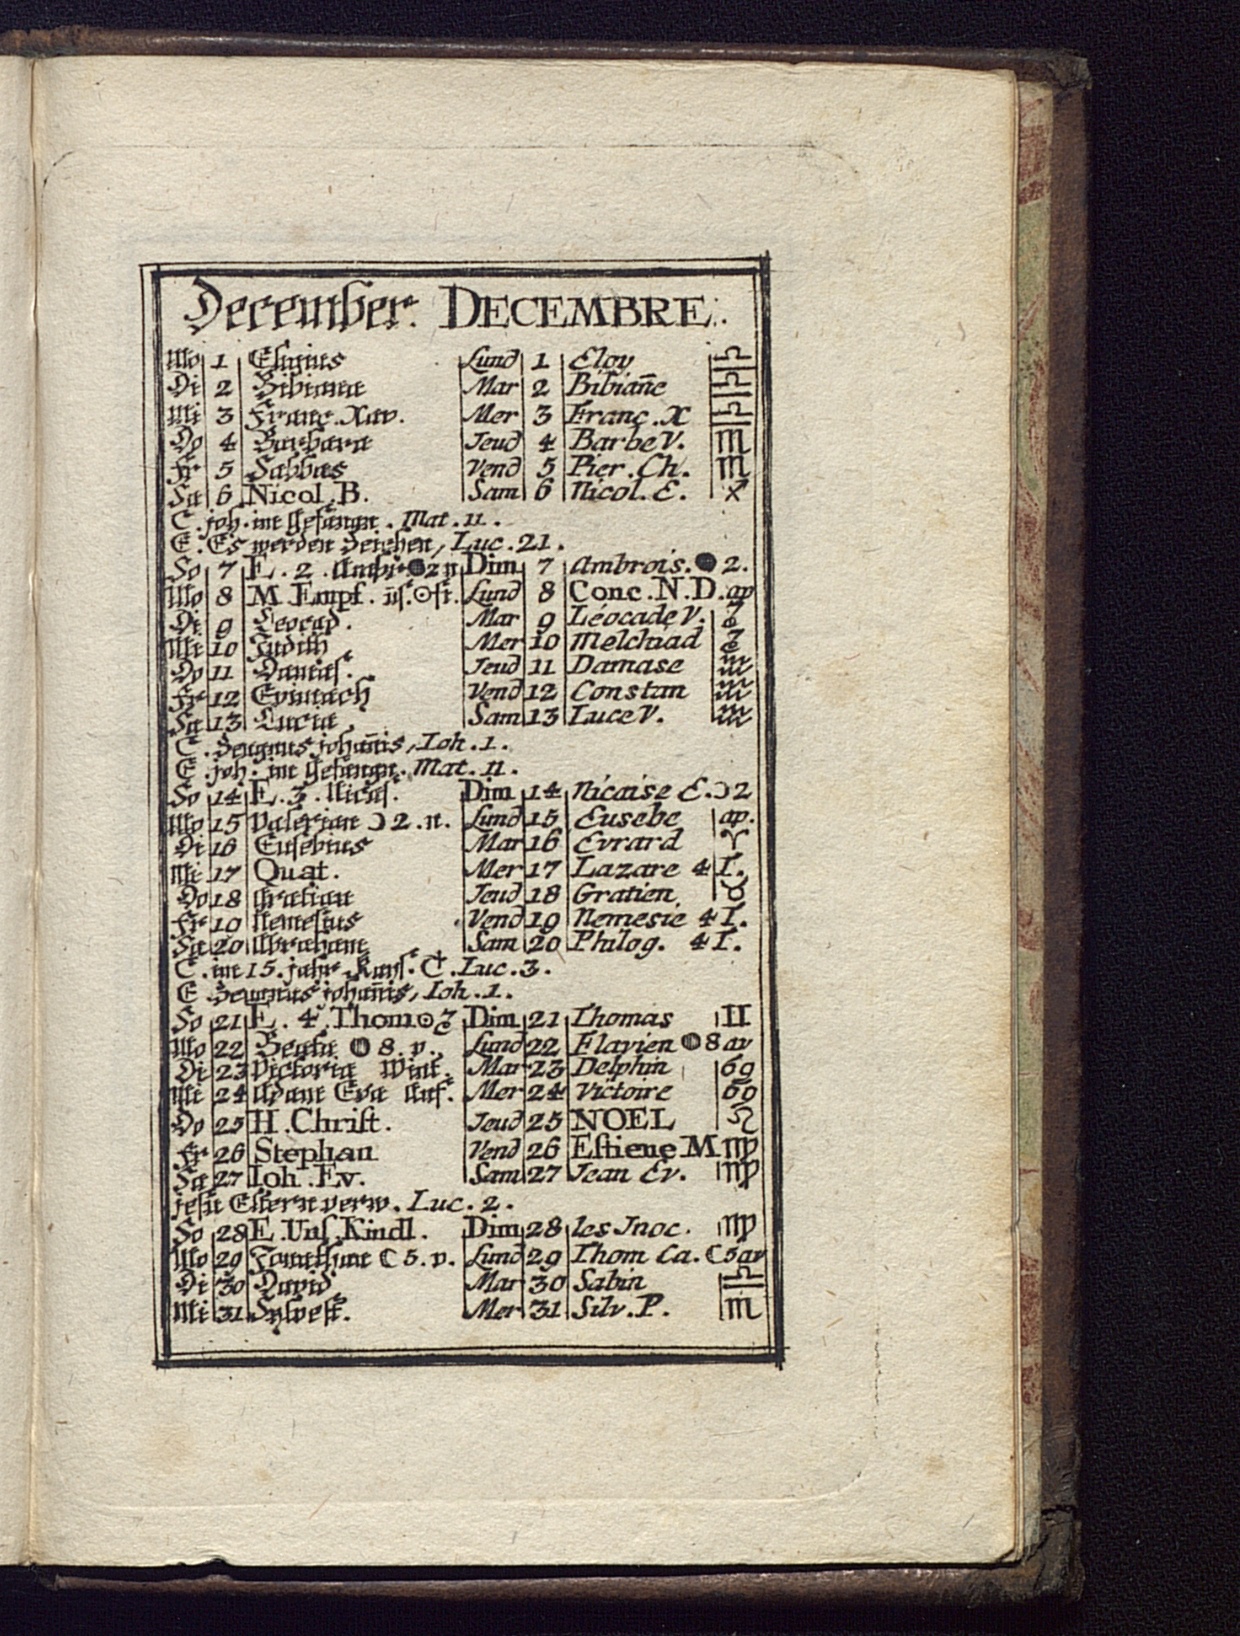 December. DECEMBRE.
Mo 1 Eligius Lund 1 Eloy ♎
Di 2 Bibiana Mar 2 Bibian̄e ♎
Mi 3 Franc. Xav. Mer 3 Franç. X ♎
Do 4 Barbara Jeud 4 Barbe V. ♏
Fr 5 Sabbas Vend 5 Pier. Ch. ♏
Sa 6 Nicol. B. Sam 6 Nicol. E. ♐
C. joh. im Gefängn. Mat. 11.
E. Es werden Zeichen, Luc. 21.
So 7 E. 2. Ambr. ● 2 n Dim 7 Ambrois. ● 2.
Mo 8 M Empf. Lund 8 Conc. N. D. ap
Di 9 Leocad. Mar 9 Léocade V. ♑
Mi 10 Judith Mer 10 Melchiad ♑
Do 11 Damas. Jeud 11 Damase ♒
Fr 12 Epimach Vend 12 Constan ♒
Sa 13 Lucia Sam 13 Luce V. ♒
C. Zeugnus johan̄is, Ioh. 1.
E. joh. im Gefängn. Mat. 11.
So 14 E. 3. Nicas. Dim 14 Nicaise E. ☽ 2
Mo 15 Valerian ☽ 2. n. Lund 15 Eusebe ap.
Di 16 Eusebius Mar 16 Evrard ♈
Mi 17 Quat. Mer 17 Lazare 4 T.
Do 18 Gratian Jeud 18 Gratien ♉
Fr 19 Nemesius Vend 19 Nemesie 4 T.
Sa 20 Abraham Sam 20 Philog. 4 T.
C. im 15. jahr Kays. T. Luc. 3.
E Zeugnus johan̄is, Ioh. 1.
So 21 E. 4. Thom ☉ ♑ Dim 21 Thomas ♊
Mo 22 Beata ● 8. v. Lund 22 Flavien ● 8 av
Di 23 Victoria Wint. Mar 23 Delphin ♋
Mi 24 Adam Eva Mer 24 Victoire ♋
Do 25 H. Christ. Jeud 25 NOEL ♌
Fr 26 Stephan Vend 26 Estiene M ♍
Sa 27 Ioh. Ev. Sam 27 Jean Ev. ♍
jesu Eltern verw. Luc. 2.
So 28 E. Uns. Kindl. Dim 28 les Jnoc. ♍
Mo 29 Jonathan ☾ 5. v. Lund 29 Thom Ca. ☾ 5 av
Di 30 David Mar 30 Sabin ♎
Mi 31 Sylvest. Mer 31 Silv. P. ♏